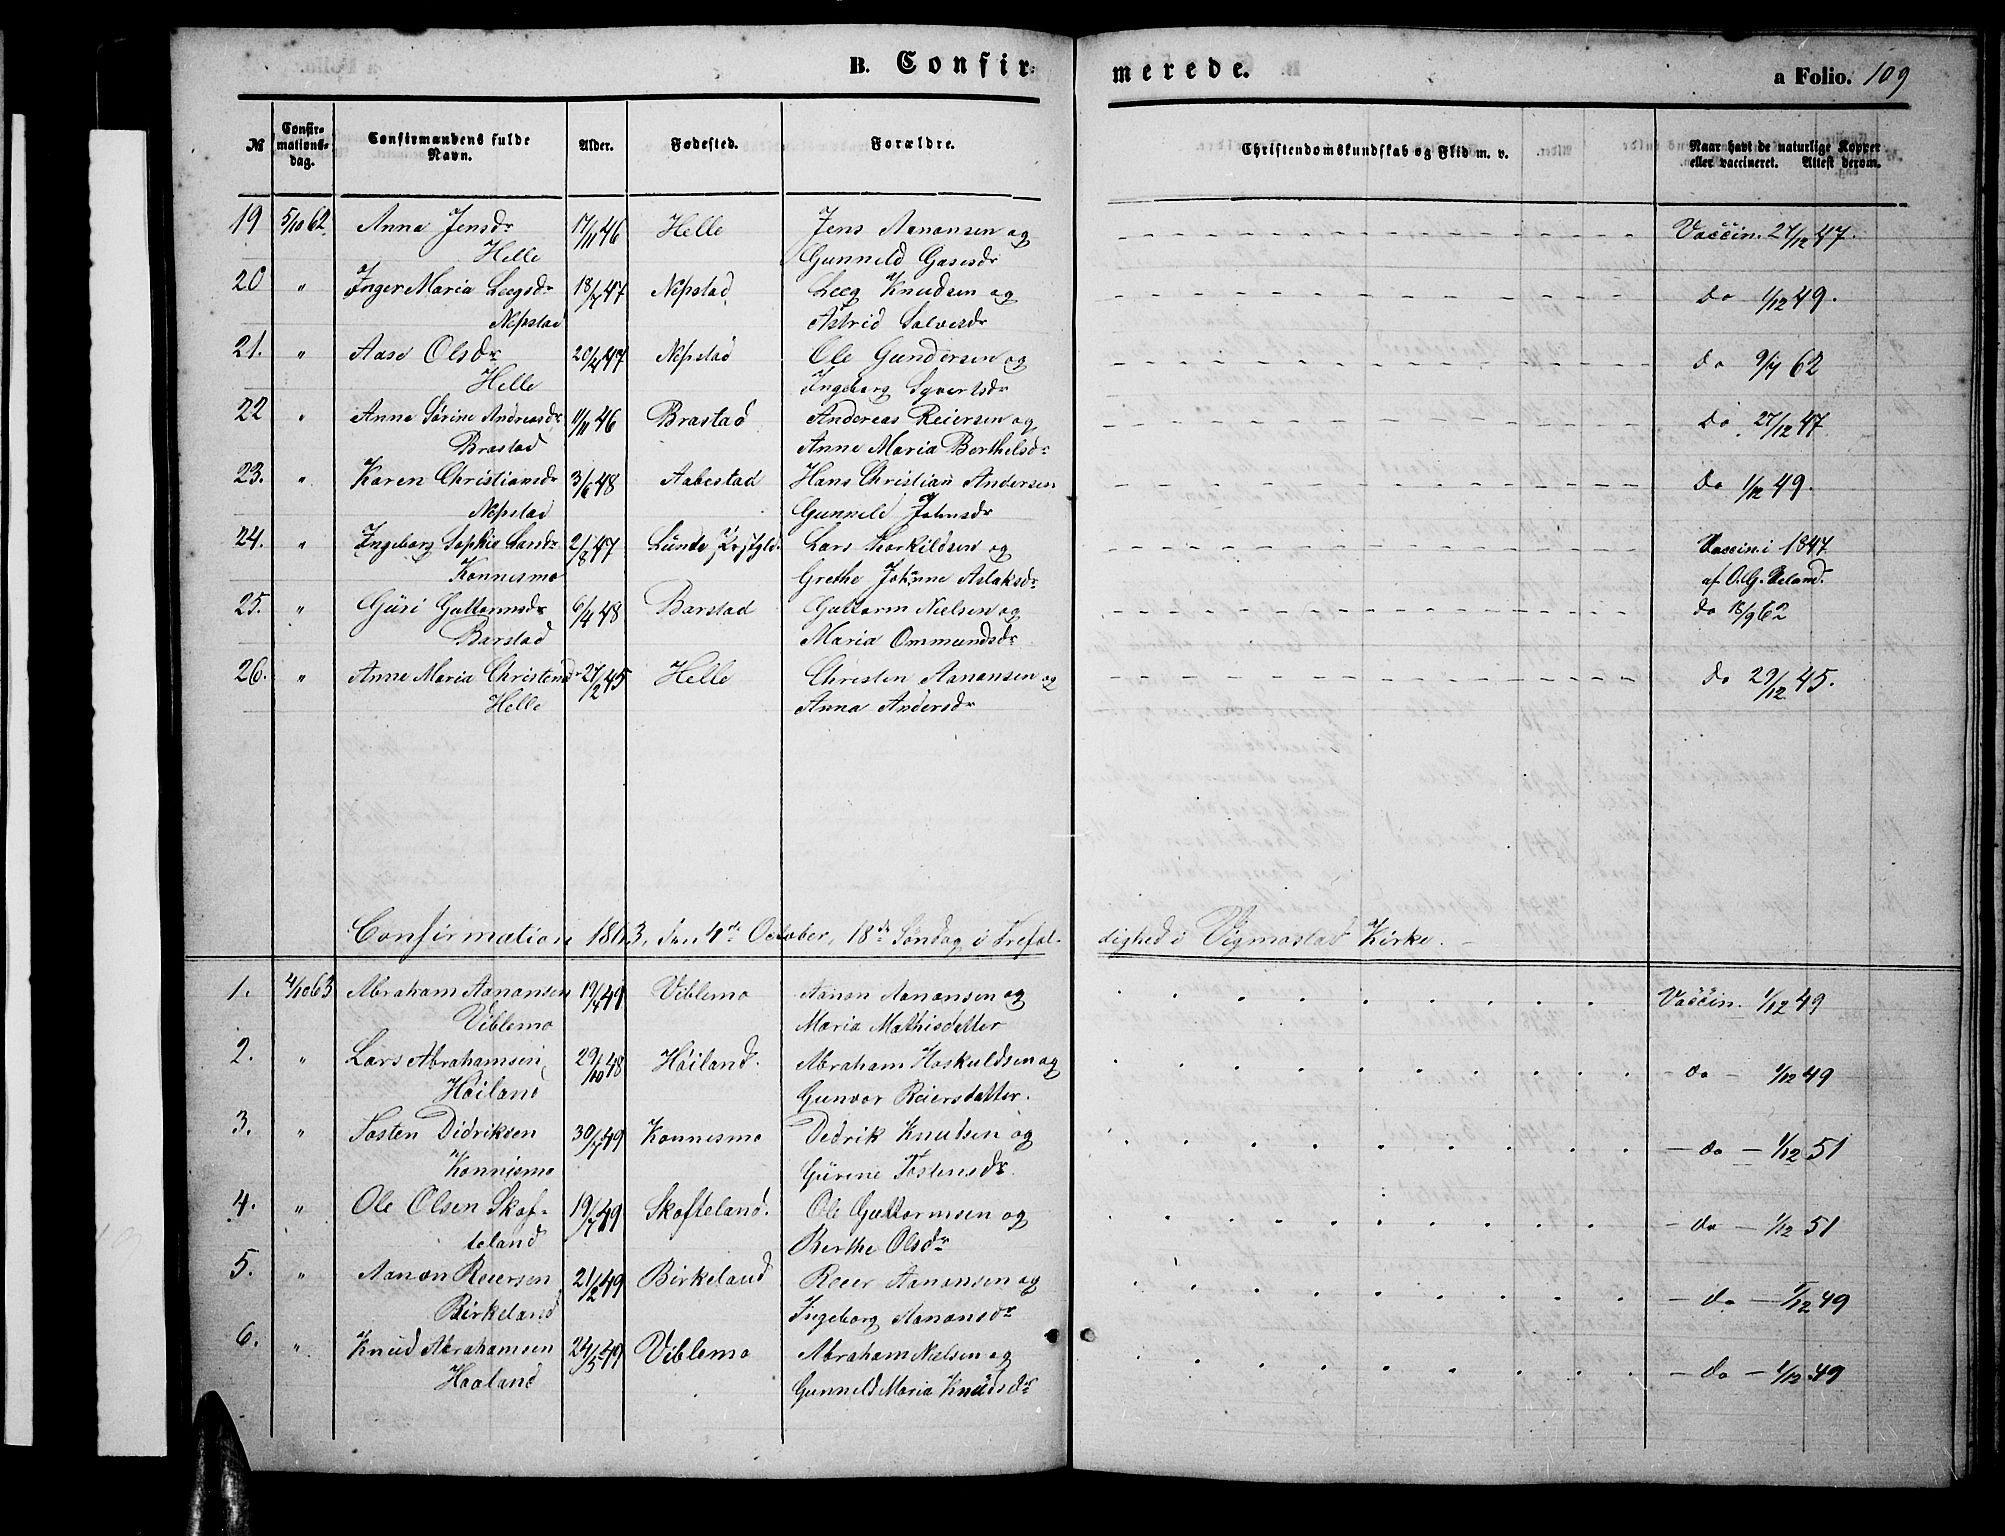 B. Confir-
merede.
a Folio. 109
№
Confir-
mations-
dag.
Confirmandens fulde
Navn.
Alder.
Fødested.
Forældre.
Christendomskundskab og Flid m. v.
Naar havt de naturlige Kopper
eller vaccineret. Attest derom.
19 5/10 62. Anna Jensdr 17/11 46 Helle Jens Aanonsen og Vaccin. 27/12 47.
Helle Gunneld
20 " Inger Maria 18/7 47 Nepstad Knudsen og do 1/12 49.
Nepstad Astrid Salvesdr
21. " Aase Olsdr 20/4 47 Nepstad Ole Gundersen og do 9/7 62
Helle Ingeborg Syvertsdr
22 " Anne Sørine Andreasdr 11/11 46 Brastad Andereas Reiersen og do 27/12 47
Brastad Anne Maria Berthelsdr
23. " Karen Christiansdr 3/6 48 Aabestad Hans Christian Andersen do 1/12 49.
Nepstad og Gunneld Johnsdr
24. " Ingeborg Sophie Larsdr 2/8 47 Lunde Lars Torkildsen og Vaccin. i 1847
Konnesmo Grethe Johanne Aslaksdr af O. G. Ueland.
25. " Guri Guttormsdr 6/4 48 Barstad Guttorm Nielsen og do 18/9 62
Barstad Maria Ommundsdr
26. " Anne Maria Christensdr 27/2 45 Helle Christen Aanonsen og do 29/12 45.
Helle Anna Andersdr
Confirmation 1863, den 4de October, 18de Søndag i Trefol-
dighed i Vigmostad Kirke.
1. 4/10 63 Abraham Aanonsen 19/4 49 Viblemo Aanon Aanonsen og Vaccin. 1/12 49
Viblemo Maria Mathisdatter
2. " Lars Abrahamsen 29/10 48 Høiland. Abraham Haskuldsen og - do - 1/12 49
Høiland Gunvor Reiersdatter.
3. " Tosten Didriksen 30/7 49 Konnesmo Dedrik Knutsen og - do - 1/12 51
Konnismo Gurine Tostensdr.
4. " Ole Olsen Skof- 19/7 49 Skofteland. Ole Guttormsen og - do - 1/12 51
teland Berthe Olsdr
5. " Aanon Reiersen 21/2 49 Birkeland Reier Aanonsen og - do - 1/12 49
Birkeland Ingeborg Aanonsdr
6. " Knud Abrahamsen 24/5 49 Viblemo Abraham Nielsen og - do - 1/12 49
Haaland Gunneld Maria Knudsdr